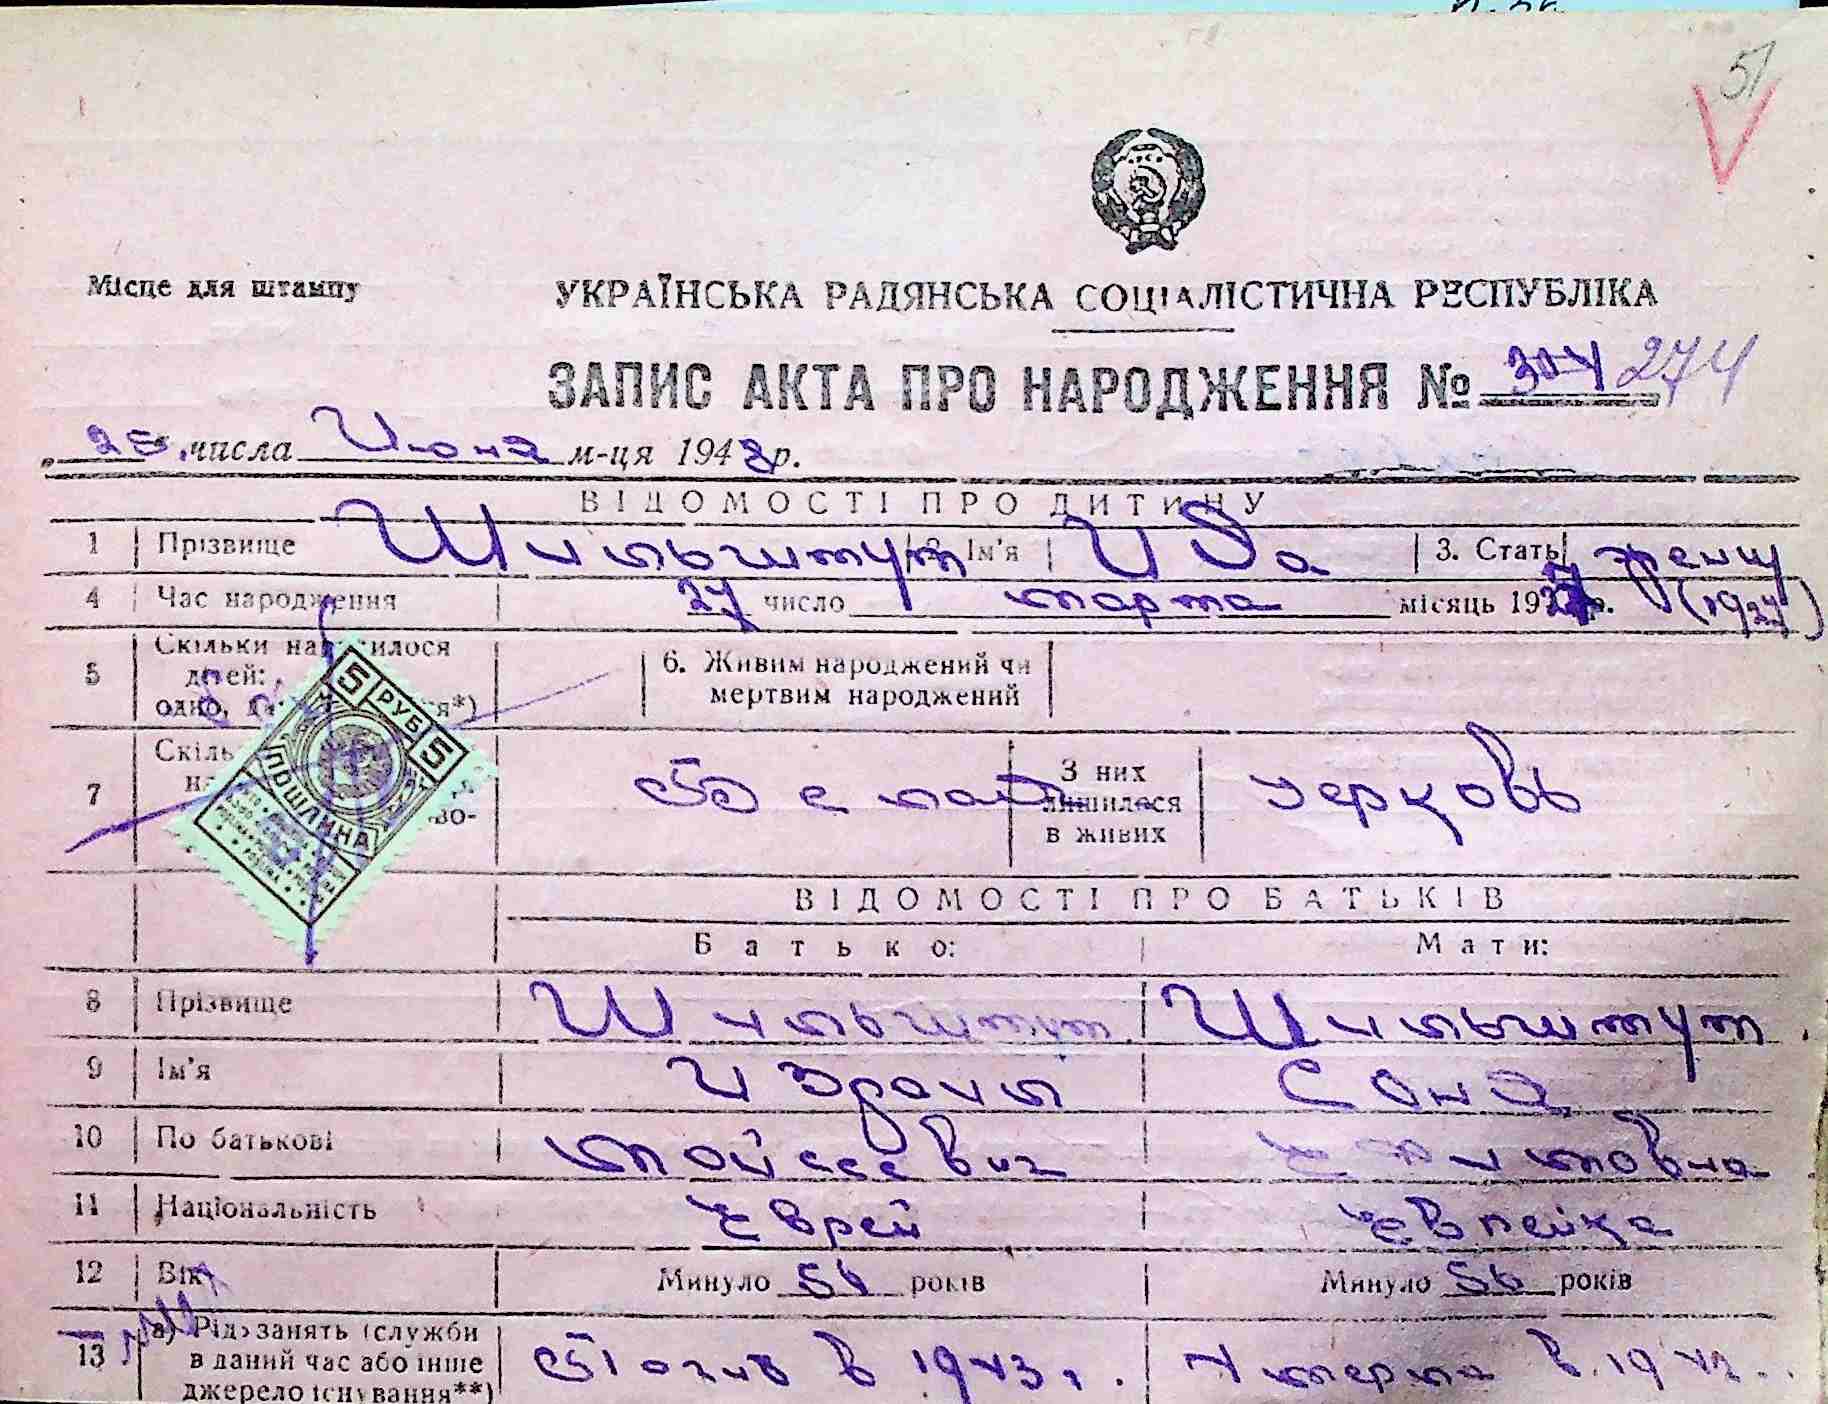 51
Місце для штампу
УКРАЇНСЬКА РАДЯНСЬКА СОЦІАЛІСТИЧНА РЕСПУБЛІКА
ЗАПИС АКТА ПРО НАРОДЖЕННЯ № 304 274
числа Июня м-ця 1948 р.
ВІДОМОСТІ ПРО ДИТИНУ
1 Прізвище Шильштут 2. Ім'я Ида 3. Стать женщ
4 Час народження 27 число марта місяць 1927 р. (1927)
5 Скільки народилося дітей: одно,
6. Живим народжений чи мертвим народжений
7 З них лишилося в живих церковь
5 РУБ 5
ПОШЛИНА
ВІДОМОСТІ ПРО БАТЬКІВ
Батько: Мати:
8 Прізвище Шильштут Шильштут
9 Ім'я Израил Соня
10 По батькові Мойсеевич
11 Національність Еврей Еврейка
12 Вік Минуло 56 років Минуло 56 років
13 а) Рід занять (служби в даний час або інше джерело існування**) Погиб в 1943 г. Умерла в 1942